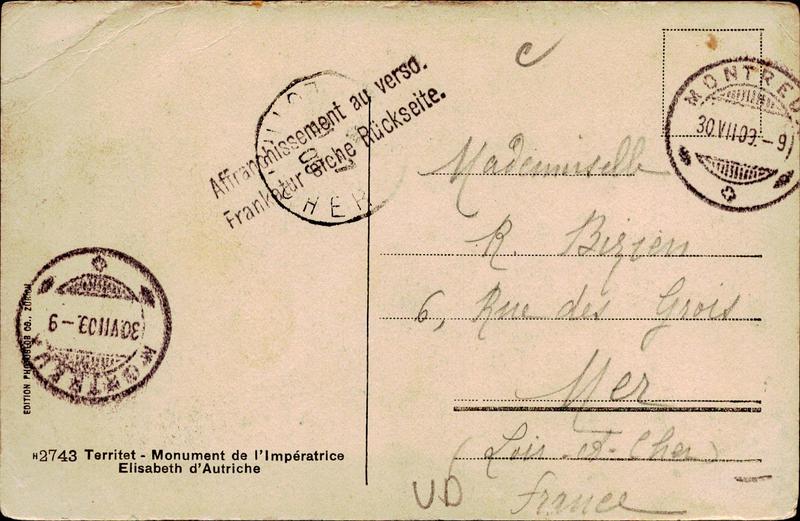 Affranchissement au verso.
Frankatur siehe Rückseite.
MONTREUX
30.VII.09.-9
HER
Mademoiselle
R. Bizien
6, Rue des Grois
Mer
(Loir-et-Cher)
France
VD
MONTREUX
30.VII.09.-9
EDITION PHOTOGLOB CO., ZÜRICH
H2743 Territet - Monument de l'Impératrice
Elisabeth d'Autriche